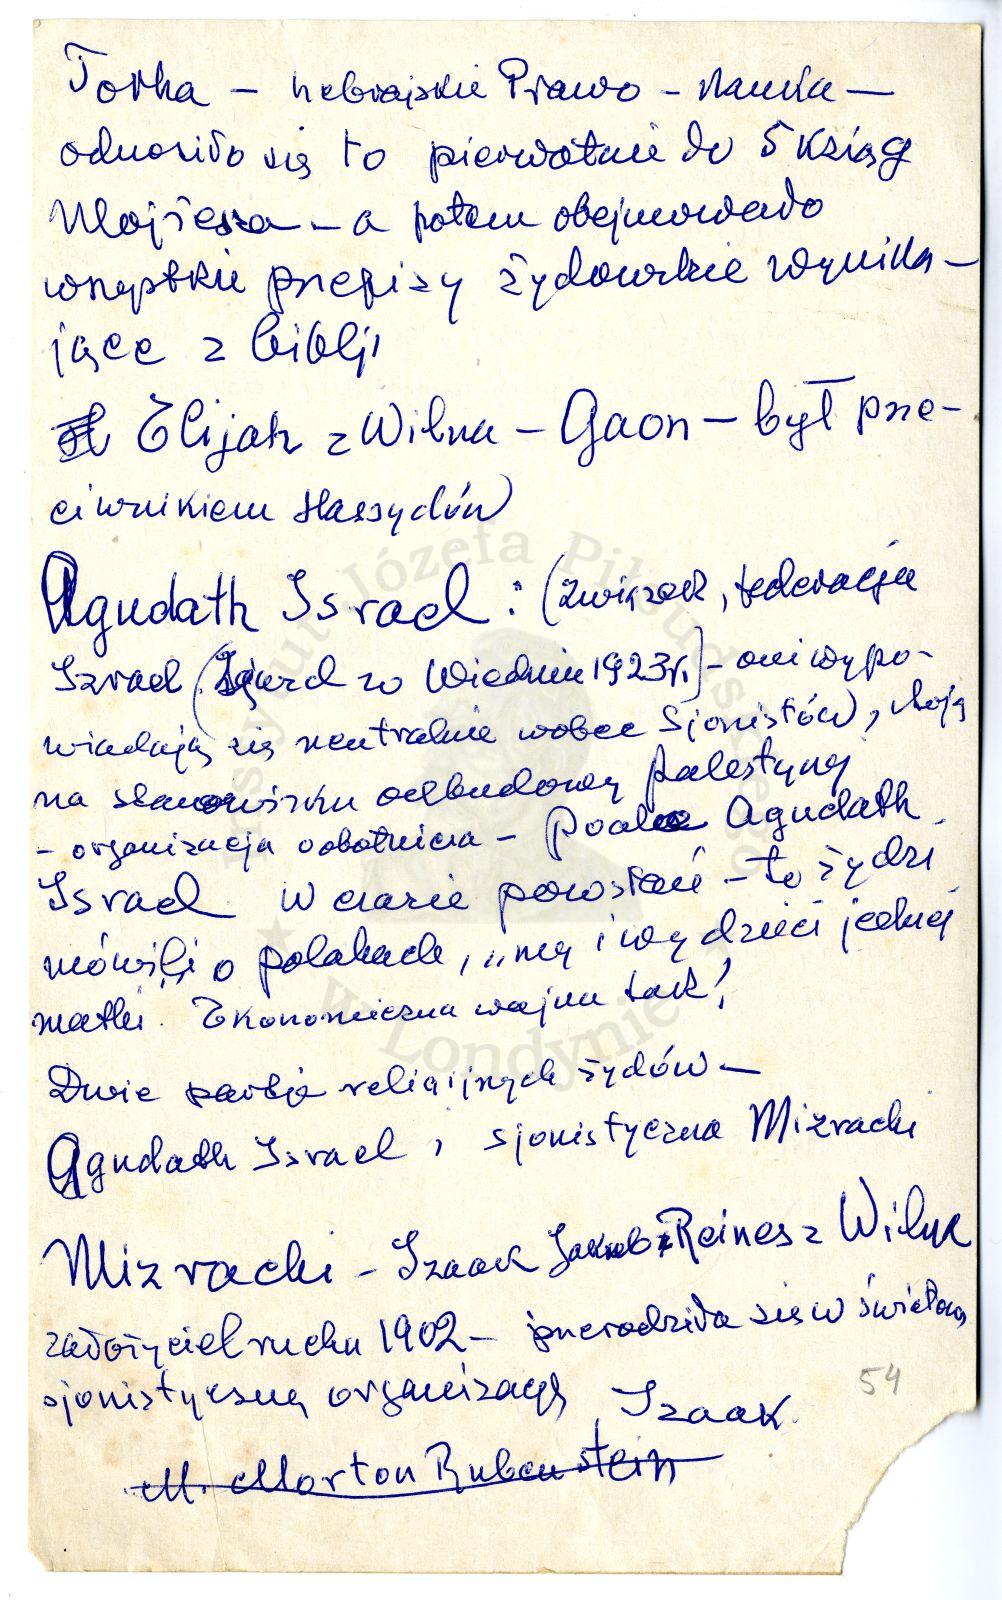 Torha – hebrajskie Prawo – nauka –
odnosiło się to pierwotnie do 5 Ksiąg
Mojżesza – a potem obejmowało
wszystkie przepisy żydowskie wynika-
jące z biblji
Elijah z Wilna – Gaon – był prze-
ciwnikiem Hassydów
Agudath Israel : (związek, federacja
Izrael (Zjazd w Wiedniu 1923 r.) – oni wypo-
wiadają się neutralnie wobec Sjonistów, stoją
na stanowisku odbudowy Palestyny
– organizacja robotnicza – Poale Agudath
Israel W czasie powstań – to żydzi
mówili o polakach, „my i wy dzieci jednej
matki". Ekonomiczna wojna tak!
Dwie partje religijnych żydów –
Agudath Israel i sjonistyczna Mizrachi
Mizrachi – Izaak Jakub Reines z Wilna
założyciel ruchu 1902 – przerodziła się w światową
sjonistyczną organizację Izaak
M. Morton Rubenstein
54
Instytut Józefa Piłsudskiego
w Londynie